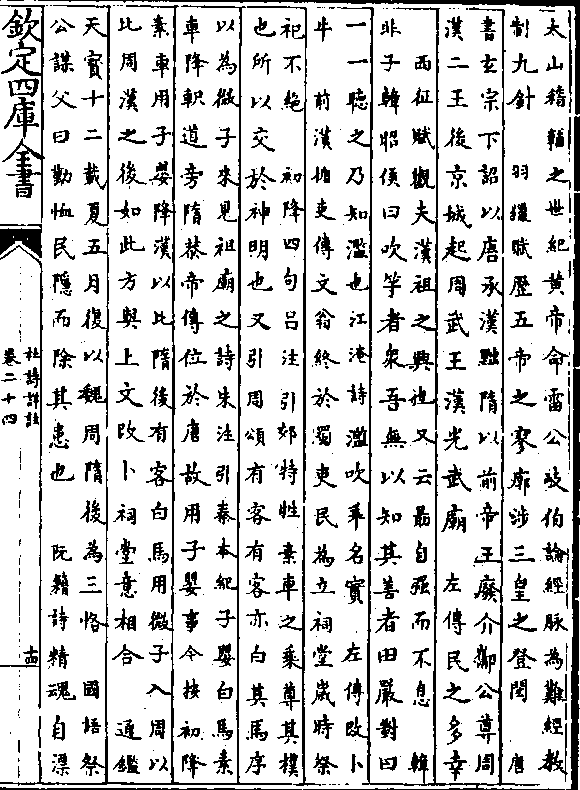 太山稽輔之世紀黃帝命雷公岐伯論經脉為難經教
制九針　羽獵賦歷五帝之寥廓涉三皇之登閎　唐
書玄宗下詔以唐承漢黜隋以前帝王廢介酅公尊周
漢二王後京城起周武王漢光武廟　左傳民之多幸
西征賦觀夫漢祖之興也又云勗自强而不息　韓
非子韓昭侯曰吹竽者衆吾無以知其善者田嚴對曰
一一聽之乃知濫也江淹詩濫吹乖名實　左傳改卜
牛　前漢循吏傳文翁終於蜀吏民為立祠堂歲時祭
祀不絶　初降四句吕注引郊特牲素車之乘尊其樸
也所以交於神明也又引周頌有客有客亦白其馬序
以為微子來見祖廟之詩朱注引秦本紀子嬰白馬素
車降軹道旁隋恭帝傳位於唐故用子嬰事今按初降
素車用子嬰降漢以比隋後有客白馬用微子入周以
比周漢之後如此方與上文改卜祠堂意相合　通鑑
天寶十二載夏五月復以魏周隋後為三恪　國語祭
公謀父曰勤恤民隱而除其患也　阮籍詩精魂自漂
欽定四庫全書
杜詩詳註
卷二十四
十四